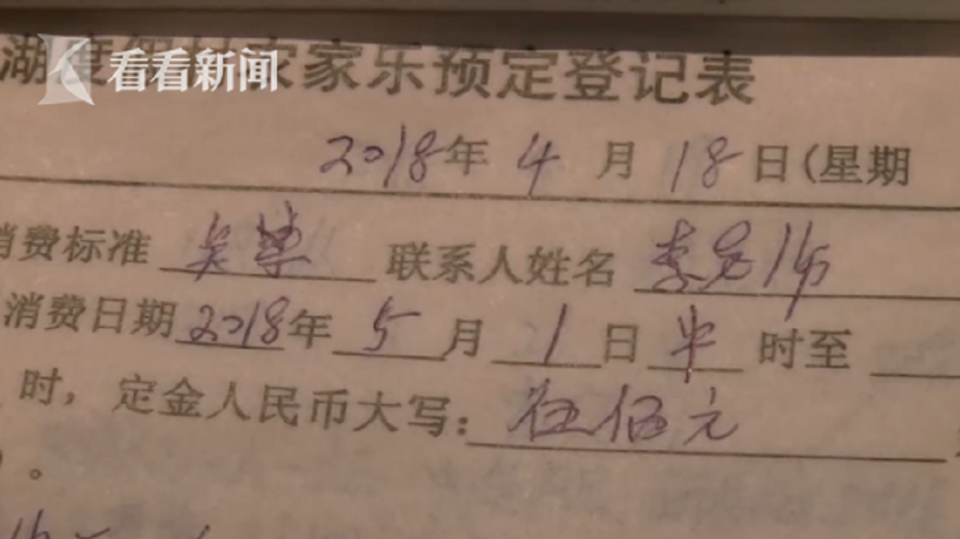 看看新闻
湖度假村农家乐预定登记表
2018年4月18日(星期
消费标准 联系人姓名 李
消费日期2018年5月1日 时至
时，定金人民币大写：伍佰元
)。